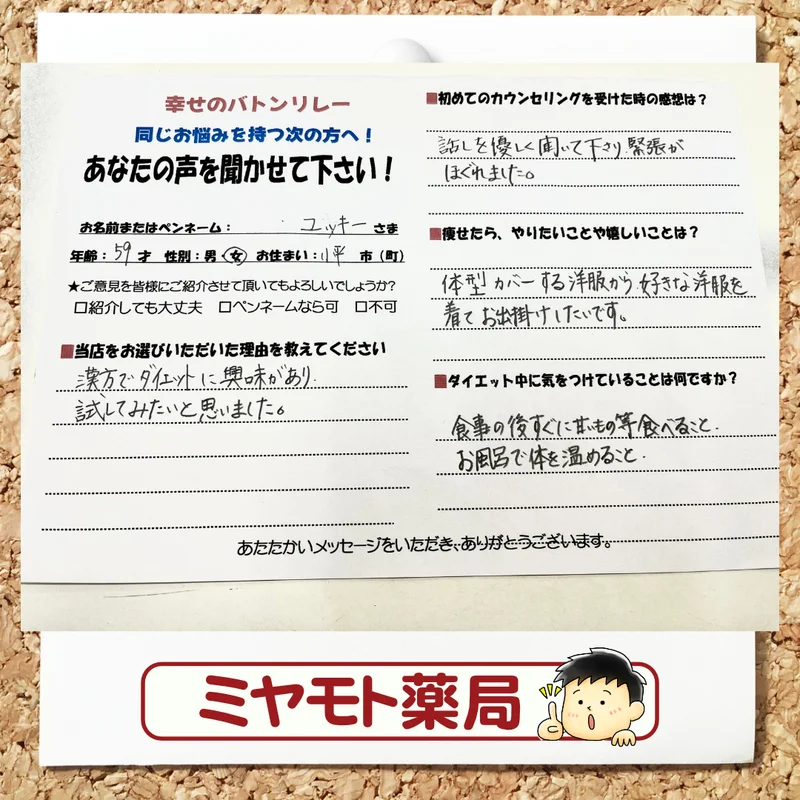 幸せのバトンリレー
同じお悩みを持つ次の方へ！
あなたの声を聞かせて下さい！
お名前またはペンネーム： ユッキー さま
年齢：59才 性別：男 女 お住まい：小平 市（町）
★ご意見を皆様にご紹介させて頂いてもよろしいでしょうか？
□紹介しても大丈夫 □ペンネームなら可 □不可
■当店をお選びいただいた理由を教えてください
漢方でダイエットに興味があり、
試してみたいと思いました。
■初めてのカウンセリングを受けた時の感想は？
話しを優しく聞いて下さり緊張が
ほぐれました。
■痩せたら、やりたいことや嬉しいことは？
体型カバーする洋服から好きな洋服を
着てお出掛けしたいです。
■ダイエット中に気をつけていることは何ですか？
食事の後すぐに甘いもの等食べること.
お風呂で体を温めること.
あたたかいメッセージをいただき、ありがとうございます。
ミヤモト薬局